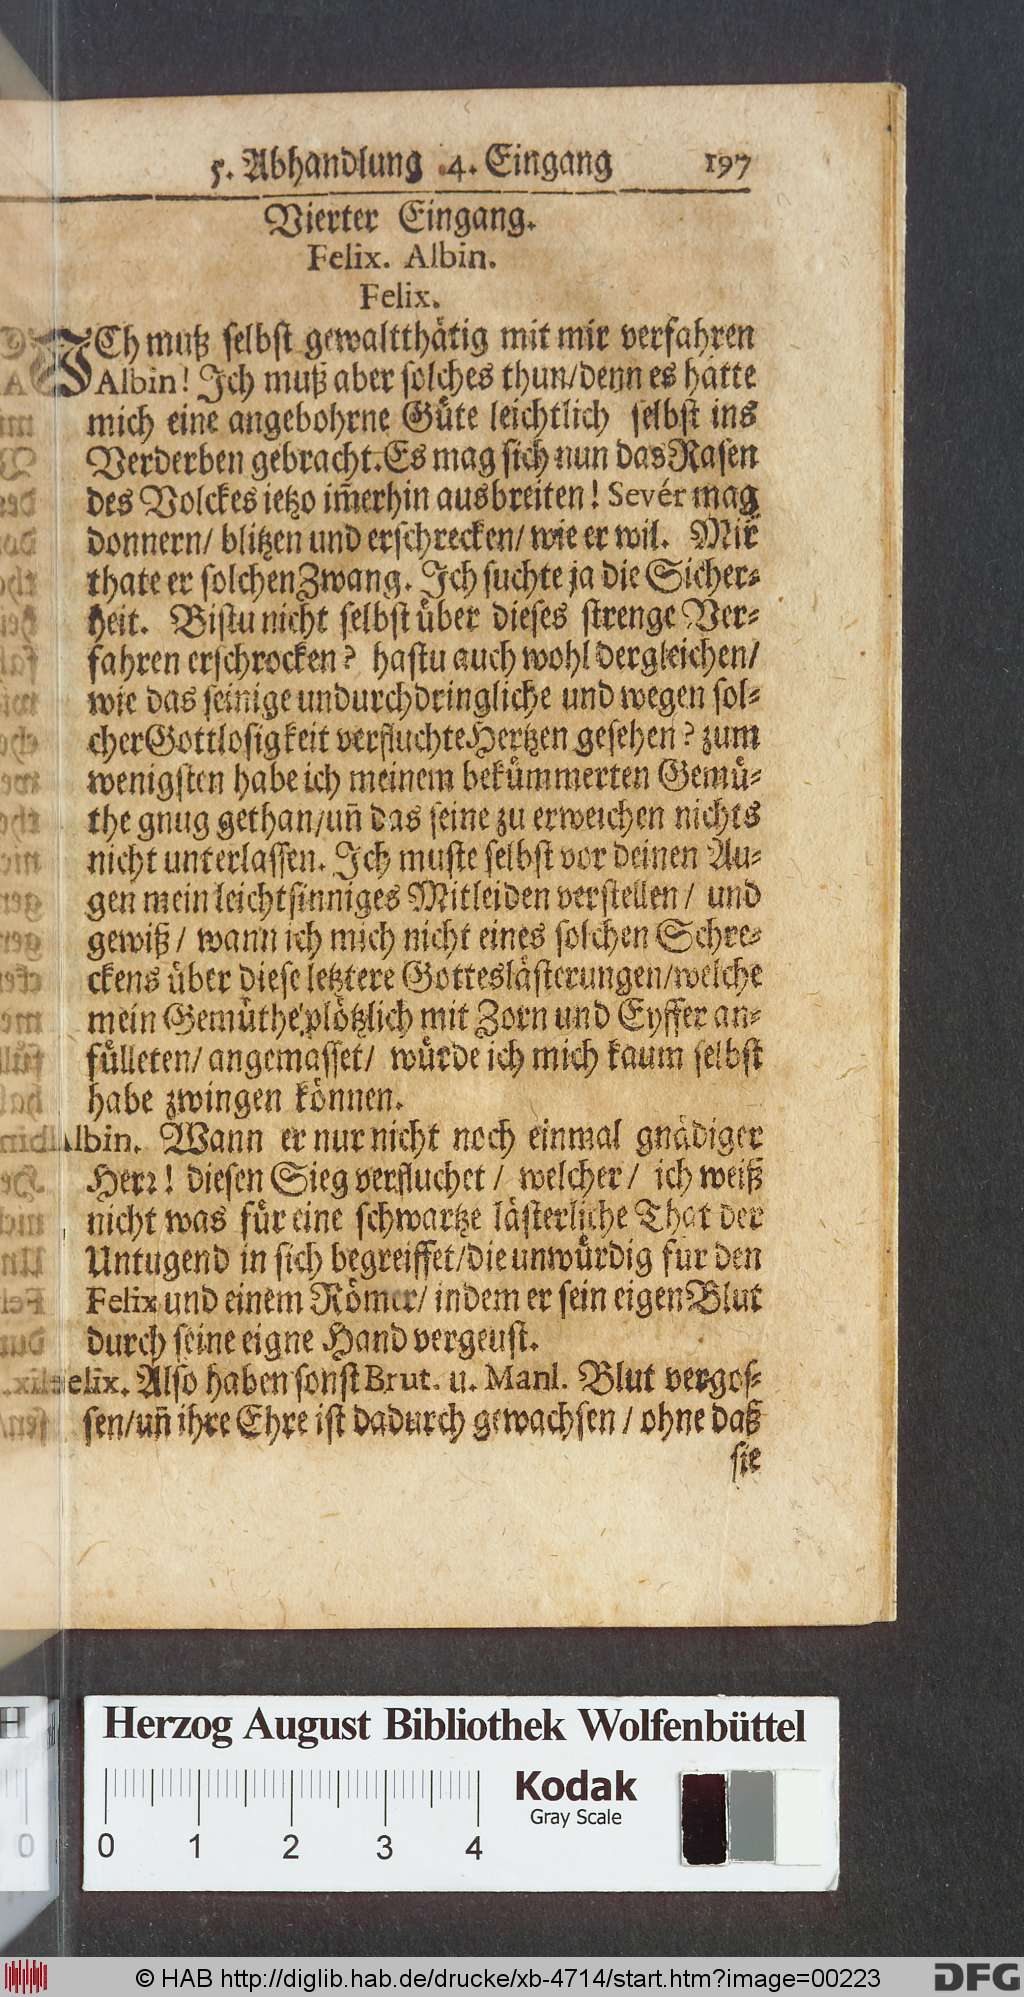 5. Abhandlung .4. Eingang 197
Vierter Eingang.
Felix. Albin.
Felix.
JCh muß selbst gewaltthätig mit mir verfahren
Albin! Jch muß aber solches thun/denn es hätte
mich eine angebohrne Güte leichtlich selbst ins
Verderben gebracht. Es mag sich nun das Rasen
des Volckes ietzo im̃erhin ausbreiten! Sevér mag
donnern/ blitzen und erschrecken/ wie er wil. Mir
thate er solchen Zwang. Jch suchte ja die Sicher-
heit. Bistu nicht selbst über dieses strenge Ver-
fahren erschrocken? hastu auch wohl dergleichen/
wie das seinige undurchdringliche und wegen sol-
cher Gottlosigkeit verfluchte Hertzen gesehen? zum
wenigsten habe ich meinem bekümmerten Gemü-
the gnug gethan/ un̄ das seine zu erweichen nichts
nicht unterlassen. Jch muste selbst vor deinen Au-
gen mein leichtsinniges Mitleiden verstellen/ und
gewiß/ wann ich mich nicht eines solchen Schre-
ckens über diese letztere Gotteslästerungen/welche
mein Gemüthe plötzlich mit Zorn und Eyffer an-
fülleten/ angemasset/ würde ich mich kaum selbst
habe zwingen können.
Albin. Wann er nur nicht noch einmal gnädiger
Herr! diesen Sieg verfluchet/ welcher/ ich weiß
nicht was für eine schwartze lästerliche That der
Untugend in sich begreiffet/die unwürdig für den
Felix und einem Römer/ indem er sein eigen Blut
durch seine eigne Hand vergeust.
Felix. Also haben sonst Brut. u. Manl. Blut vergos-
sen/un̄ ihre Ehre ist dadurch gewachsen/ ohne daß
sie
Herzog August Bibliothek Wolfenbüttel
Kodak
Gray Scale
0 1 2 3 4
© HAB http://diglib.hab.de/drucke/xb-4714/start.htm?image=00223
DFG